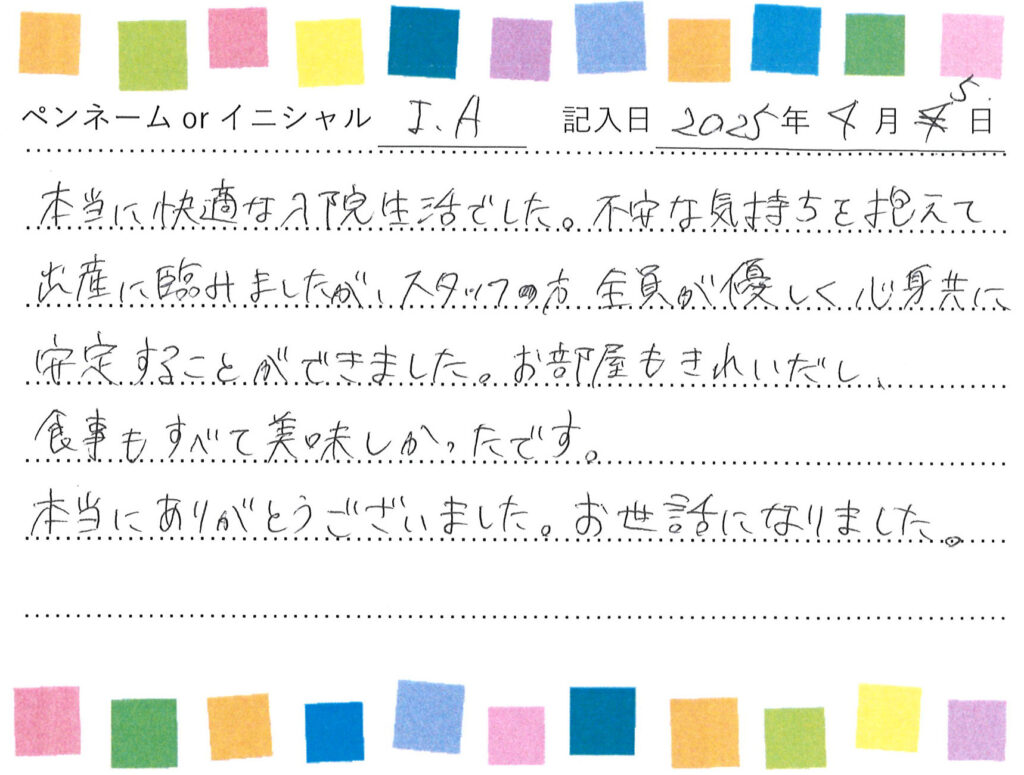 ペンネーム or イニシャル I.A 記入日 2025年 4月 5日
本当に快適な入院生活でした。不安な気持ちを抱えて
出産に臨みましたが、スタッフの方 全員が優しく心身共に、
安定することができました。お部屋もきれいだし、
食事もすべて美味しかったです。
本当にありがとうございました。お世話になりました。